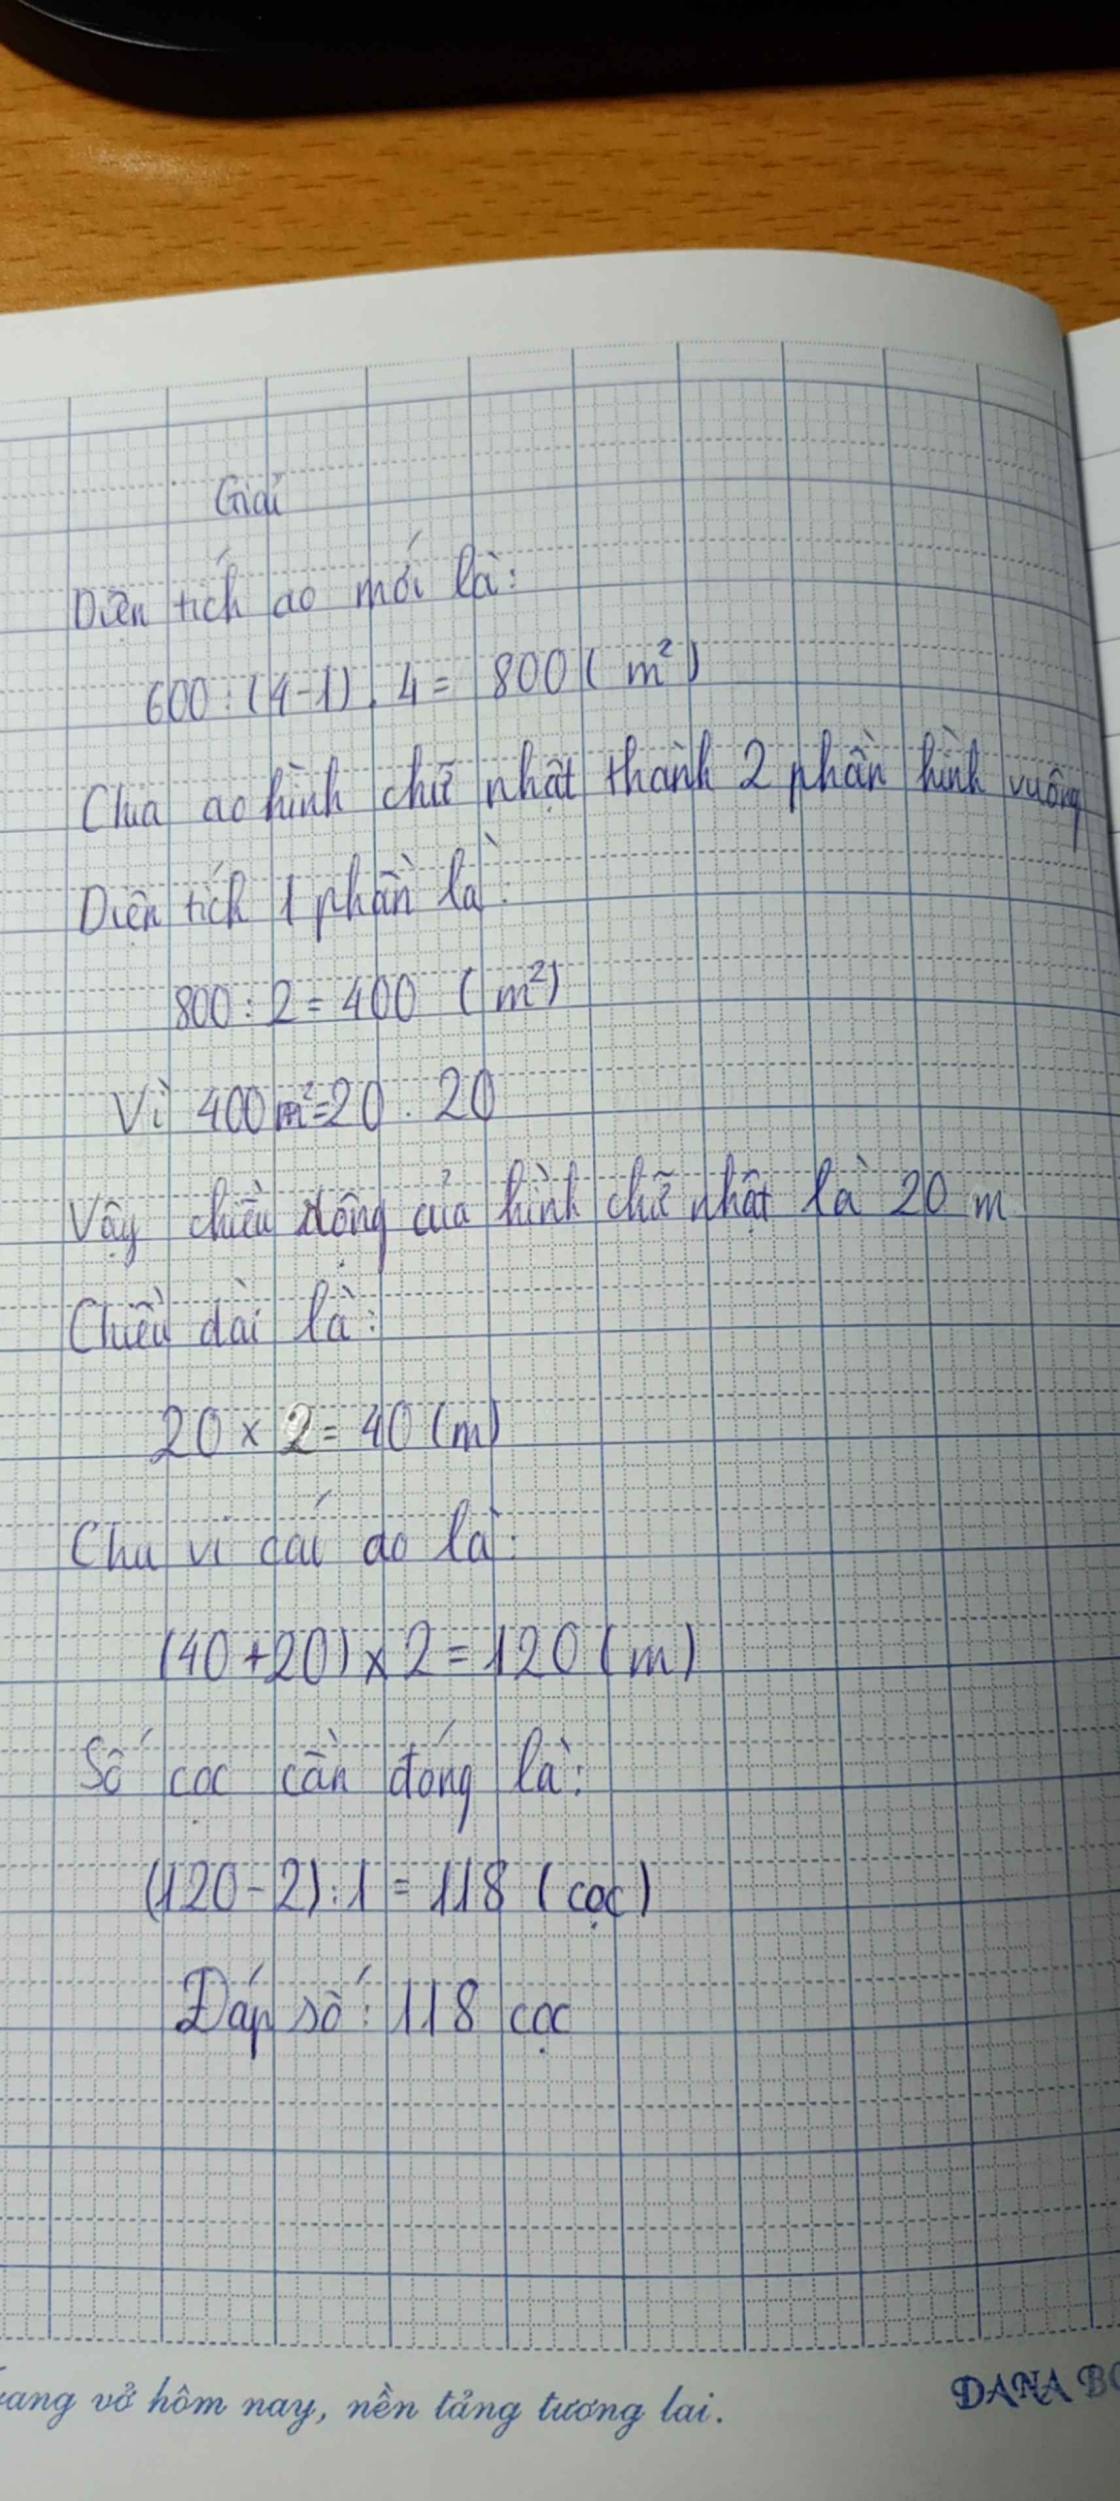 Giải
Diện tích ao mới là:
600 : (4-1) . 4 = 800 ( m²)
Chia ao hình chữ nhật thành 2 phần hình vuông
Diện tích 1 phần là:
800 : 2 = 400 ( m²)
Vì 400m²=20 . 20
Vậy chiều rộng của hình chữ nhật là 20 m
Chiều dài là:
20 x 2 = 40 (m)
Chu vi cái ao là:
(40 + 20) x 2 = 120 (m)
Số cọc cần đóng là:
(120 - 2) : 1 = 118 ( cọc )
Đáp số : 118 cọc
vở hôm nay, nền tảng tương lai.
DANA